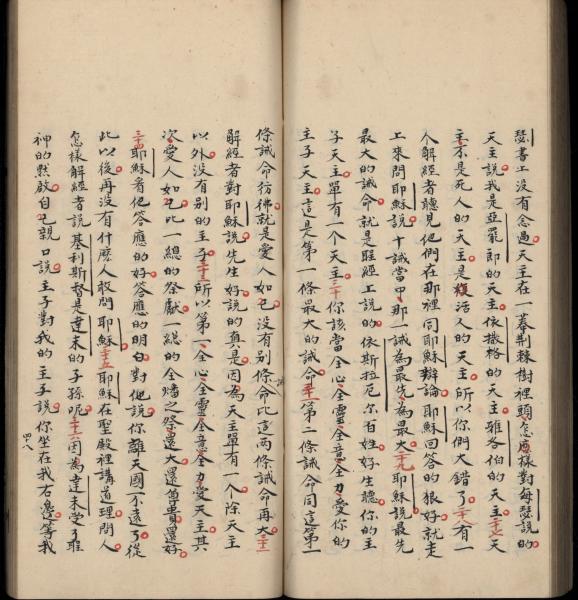 瑟書上沒有念過天主在一蓁荆棘樹裡頭怎麽樣對每瑟說的
天主說我是亞罷郎的天主依撒格的天主雅各伯的天主二十七天
主不是死人的天主是復活人的天主所以你們大錯了二十八有一
个解經者聽見他們在那裡同耶穌辯論耶穌回答的狠好就走
上來問耶穌說十誡當中那一誡為最先為最大二十九耶穌說最先
最大的誡命就是聖經上說的依斯拉尼尔百姓好生聽你的主
子天主單有一个天主三十你該當全心全靈全意全力愛你的
主子天主這是第一條最大的誡命三十一第二條誡命同這第一
條誡命彷彿就是愛人如己沒有别條命比這两條誡命再大三十二
解經者對耶穌說先生好說的真是因為天主單有一个除天主
以外沒有别的主子三十三所以第一全心全靈全意全力愛天主其
次愛人如己比一總的祭獻一總的全燔之祭還大還貴還好
三十四耶穌看他答應的好答應的明白對他說你離天國不遠了從
此以後再沒有什麽人敢問耶穌三十五耶穌在聖殿裡講道理問人
怎樣解經者說基利斯督是達未的子孫呢三十六因為達未受了聖
神的黙啟自己親口說主子對我的主子說你坐在我右邊等我
四八